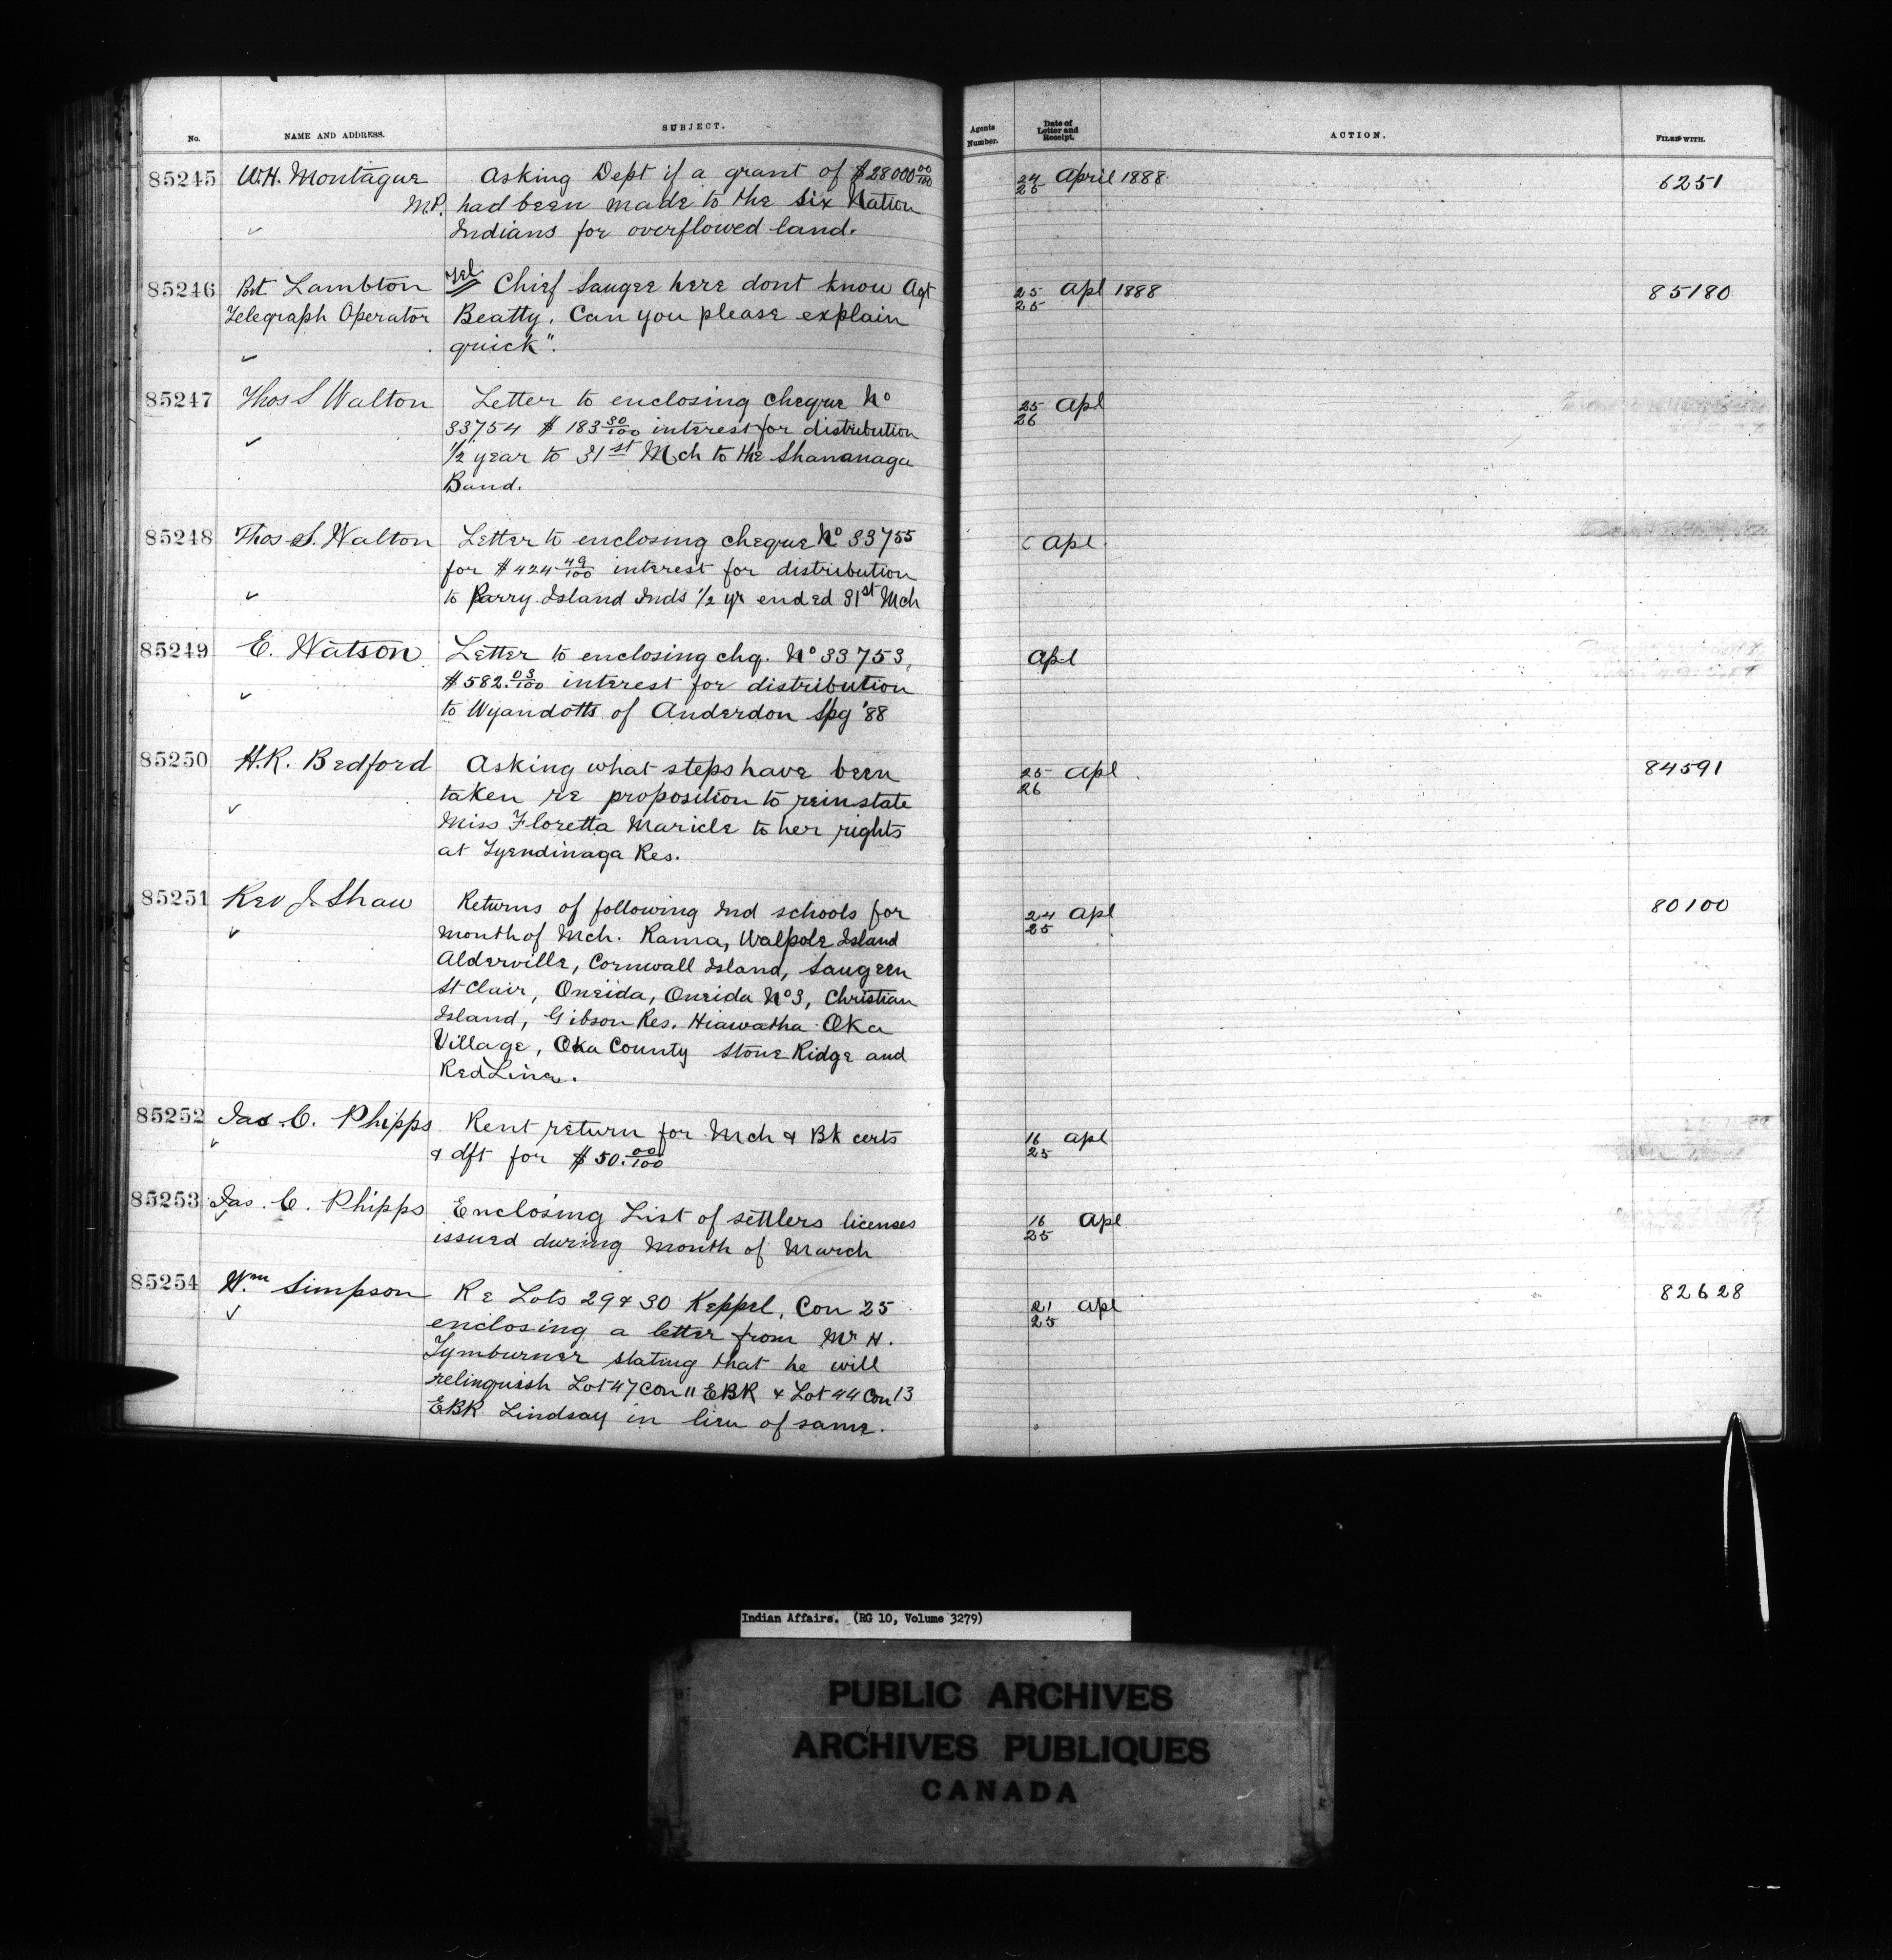 No. NAME AND ADDRESS. SUBJECT. Agents Number. Date of Letter and Receipt. ACTION. FILED WITH.
85245 W.H. Montague Asking Dept if a grant of $28000 00/100 24/25 April 1888 6251
M.P. had been made to the Six Nation
Indians for overflowed land.
85246 Port Lambton Tel Chief Saugee here dont know Agt 25/25 Apl 1888 85180
Telegraph Operator Beatty. Can you please explain
quick".
85247 Thos S Walton Letter to enclosing cheque No 25/26 Apl
33754 $183 30/100 interest for distribution
1/2 year to 31st Mch to the Shawanaga
Band.
85248 Thos S. Walton Letter to enclosing cheque No 33755 Apl
for $424 49/100 interest for distribution
to Parry Island Inds 1/2 yr ended 31st Mch
85249 E. Watson Letter to enclosing chq. No 33753, Apl
$582. 03/100 interest for distribution
to Wyandotts of Anderdon Spg '88
85250 H.R. Bedford Asking what steps have been 25/26 Apl 84591
taken re proposition to reinstate
Miss Floretta Maricle to her rights
at Tyendinaga Res.
85251 Rev J. Shaw Returns of following Ind schools for 24/25 Apl 80100
month of Mch. Rama, Walpole Island
Alderville, Cornwall Island, Saugeen
St Clair, Oneida, Oneida No 3, Christian
Island, Gibson Res. Hiawatha Oka
Village, Oka County Stone Ridge and
Red Line.
85252 Jas C. Phipps Rent return for Mch & Bk certs 16/25 Apl
& dft for $50. 00/100
85253 Jas. C. Phipps Enclosing List of settlers licenses 16/25 Apl
issued during Month of March
85254 Wm Simpson Re Lots 29 & 30 Keppel, Con 25 21/25 Apl 82628
enclosing a letter from Mr H.
Tymburner stating that he will
relinquish Lot 47 Con 11 EBR & Lot 44 Con 13
EBR Lindsay in lieu of same.
Indian Affairs. (RG 10, Volume 3279)
PUBLIC ARCHIVES
ARCHIVES PUBLIQUES
CANADA